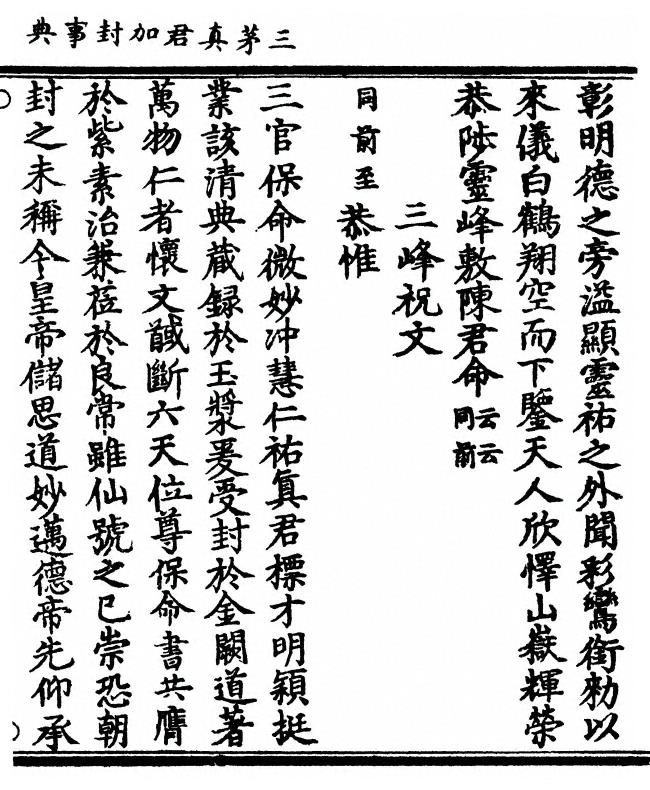 三茅真君加封事典
彰明德之旁溢顯靈祐之外聞彩鸞銜勑以
來儀白鶴翔空而下鑒天人欣懌山嶽輝榮
恭陟靈峰敷陳君命云云同前
三峰祝文
同前至恭惟
三官保命微妙冲慧仁祐真君標才明穎挺
業該清典蔵録於玉漿爰受封於金闕道著
萬物仁者懷文馘斷六天位尊保命書共膺
於紫素治兼莅於良常雖仙號之已崇恐朝
封之未稱今皇帝儲思道妙邁德帝先仰承